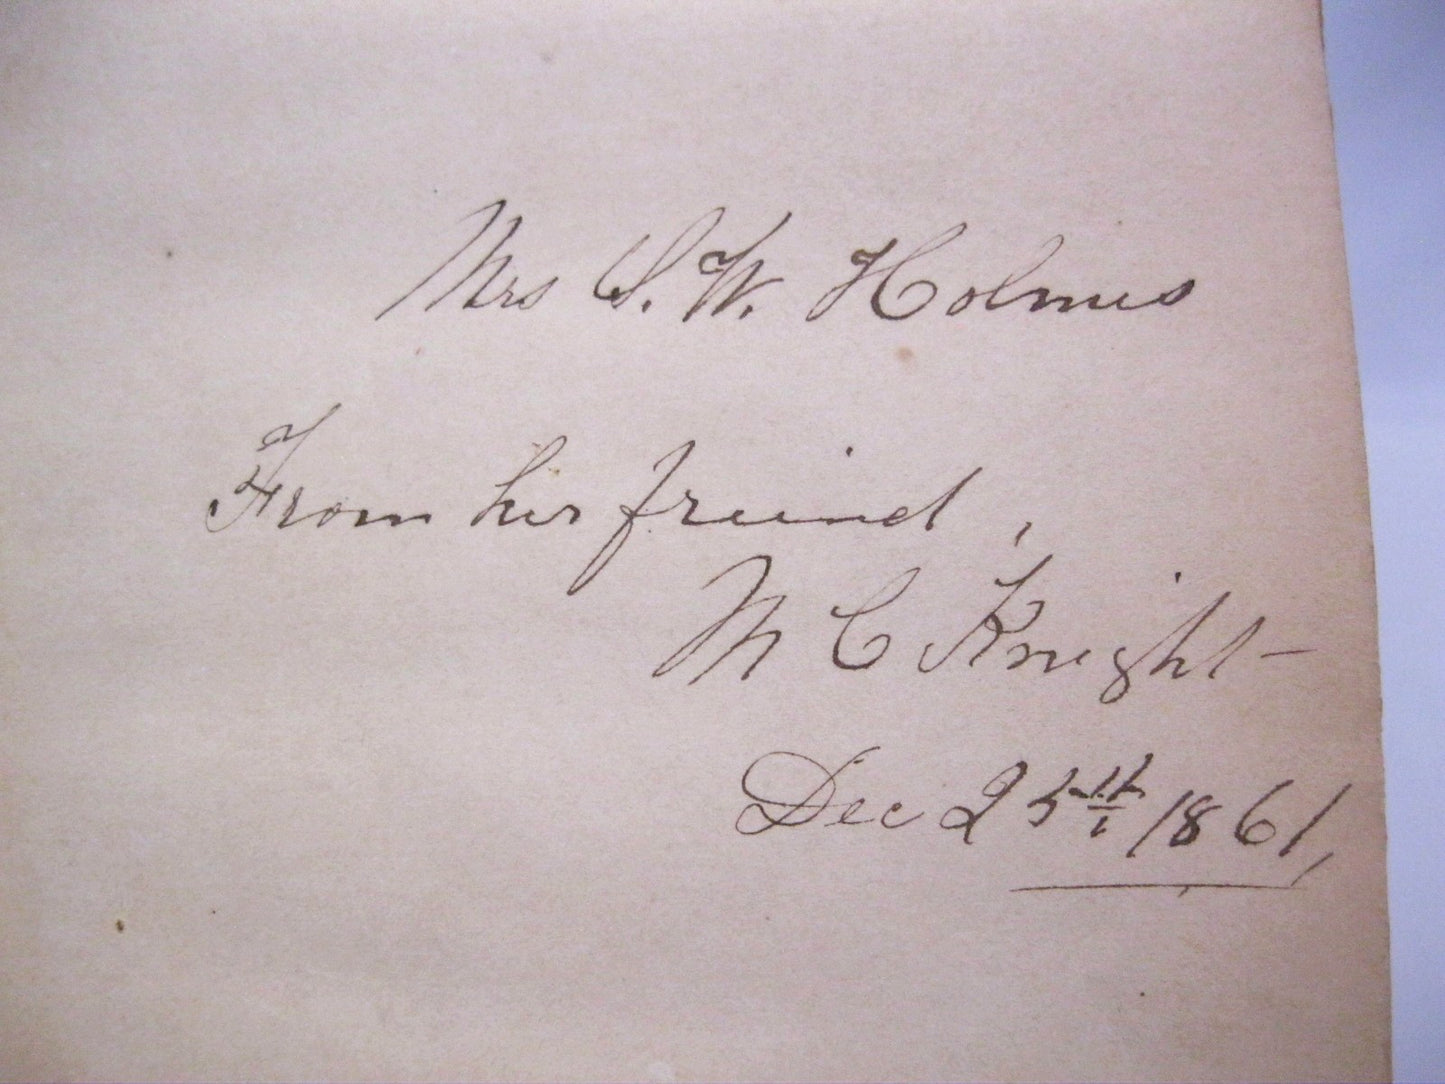 Mrs S. W. Holmes
From her friend,
M C Knight
Dec 25th 1861,